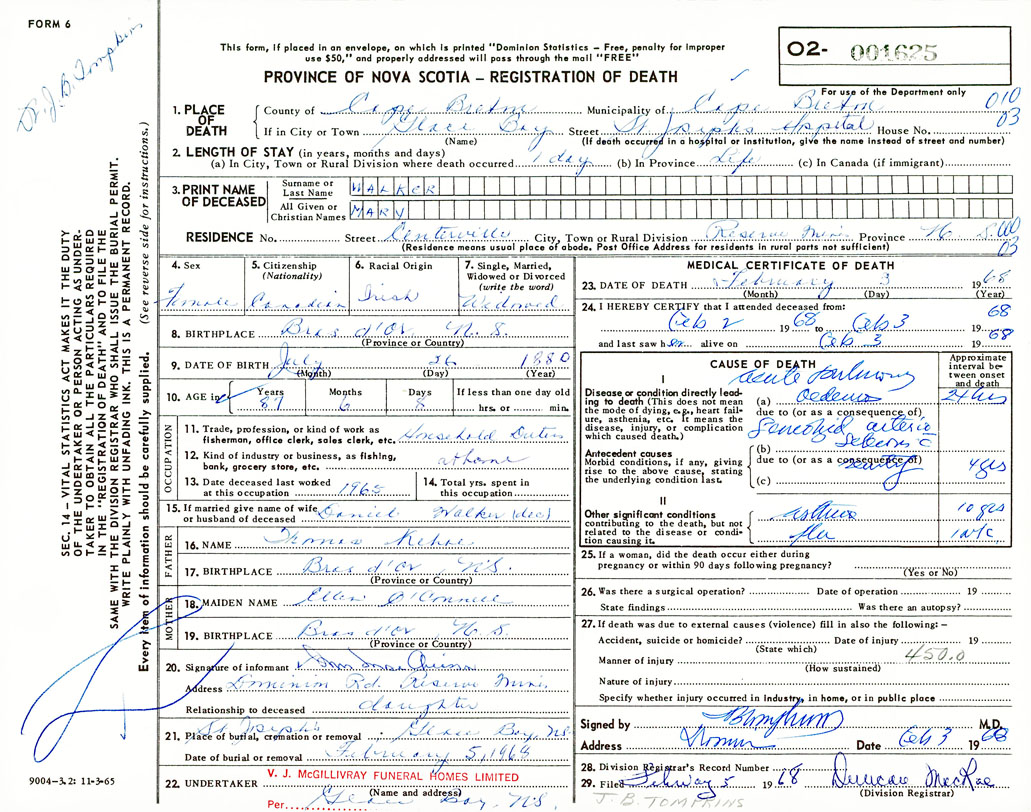 FORM 6
Dr. J. B. Tompkins
This form, if placed in an envelope, on which is printed "Dominion Statistics – Free, penalty for improper
use $50," and properly addressed will pass through the mail "FREE"
PROVINCE OF NOVA SCOTIA – REGISTRATION OF DEATH
O2- 001625
For use of the Department only
010
03
1. PLACE OF DEATH
County of Cape Breton Municipality of Cape Breton
If in City or Town Glace Bay Street St Josephs Hospital House No.
(Name) (If death occurred in a hospital or institution, give the name instead of street and number)
2. LENGTH OF STAY (in years, months and days)
(a) In City, Town or Rural Division where death occurred 1 day (b) In Province Life (c) In Canada (if immigrant)
3. PRINT NAME OF DECEASED
Surname or Last Name WALKER
All Given or Christian Names MARY
RESIDENCE No. Street Centerville City, Town or Rural Division Reserve Mines Province N. S.
(Residence means usual place of abode. Post Office Address for residents in rural parts not sufficient)
03
4. Sex Female
5. Citizenship (Nationality) Canadian
6. Racial Origin Irish
7. Single, Married, Widowed or Divorced (write the word) Widowed
8. BIRTHPLACE Bras d'Or N. S.
(Province or Country)
9. DATE OF BIRTH July 26 1880
(Month) (Day) (Year)
10. AGE in Years 87 Months 6 Days 8 If less than one day old hrs. or min.
OCCUPATION
11. Trade, profession, or kind of work as
fisherman, office clerk, sales clerk, etc. Household Duties
12. Kind of industry or business, as fishing,
bank, grocery store, etc. at home
13. Date deceased last worked
at this occupation 1965
14. Total yrs. spent in
this occupation
15. If married give name of wife
or husband of deceased Daniel Walker (dec)
FATHER
16. NAME Thomas Kehoe
17. BIRTHPLACE Bras d'Or N.S.
(Province or Country)
MOTHER
18. MAIDEN NAME Ellen O'Connell
19. BIRTHPLACE Bras d'Or N. S.
(Province or Country)
20. Signature of informant
Address Dominion Rd. Reserve Mines
Relationship to deceased daughter
21. Place of burial, cremation or removal St Joseph's Glace Bay, N.S.
Date of burial or removal February 5, 1968
22. UNDERTAKER V. J. McGILLIVRAY FUNERAL HOMES LIMITED
(Name and address)
Per Glace Bay, N.S.
9004–3.2: 11-3-65
SEC. 14 – VITAL STATISTICS ACT MAKES IT THE DUTY
OF THE UNDERTAKER OR PERSON ACTING AS UNDER-
TAKER TO OBTAIN ALL THE PARTICULARS REQUIRED
IN THE "REGISTRATION OF DEATH" AND TO FILE THE
SAME WITH THE DIVISION REGISTRAR WHO SHALL ISSUE THE BURIAL PERMIT.
WRITE PLAINLY WITH UNFADING INK. THIS IS A PERMANENT RECORD.
Every item of information should be carefully supplied. (See reverse side for instructions.)
MEDICAL CERTIFICATE OF DEATH
23. DATE OF DEATH February 3 1968
(Month) (Day) (Year)
24. I HEREBY CERTIFY that I attended deceased from:
Feb 2 1968 to Feb 3 1968
and last saw her alive on Feb 3 1968
CAUSE OF DEATH
Approximate interval between onset and death
I
Disease or condition directly lead-
ing to death (This does not mean
the mode of dying, e.g., heart fail-
ure, asthenia, etc. It means the
disease, injury, or complication
which caused death.)
(a) acute pulmonary oedema 24 hrs
due to (or as a consequence of)
Antecedent causes
Morbid conditions, if any, giving
rise to the above cause, stating
the underlying condition last.
(b) Generalized arterio sclerosis
due to (or as a consequence of)
(c) 4 yrs
II
Other significant conditions
contributing to the death, but not
related to the disease or condi-
tion causing it.
asthma 10 yrs
flu 1 wk
25. If a woman, did the death occur either during
pregnancy or within 90 days following pregnancy?
(Yes or No)
26. Was there a surgical operation? Date of operation 19
State findings Was there an autopsy?
27. If death was due to external causes (violence) fill in also the following: –
Accident, suicide or homicide? Date of injury 19
(State which)
450.0
Manner of injury
(How sustained)
Nature of injury
Specify whether injury occurred in industry, in home, or in public place
Signed by M.D.
Address Dominion Date Feb 3 1968
28. Division Registrar's Record Number
29. Filed February 5 1968 Duncan MacRae
(Division Registrar)
J. B. TOMPKINS